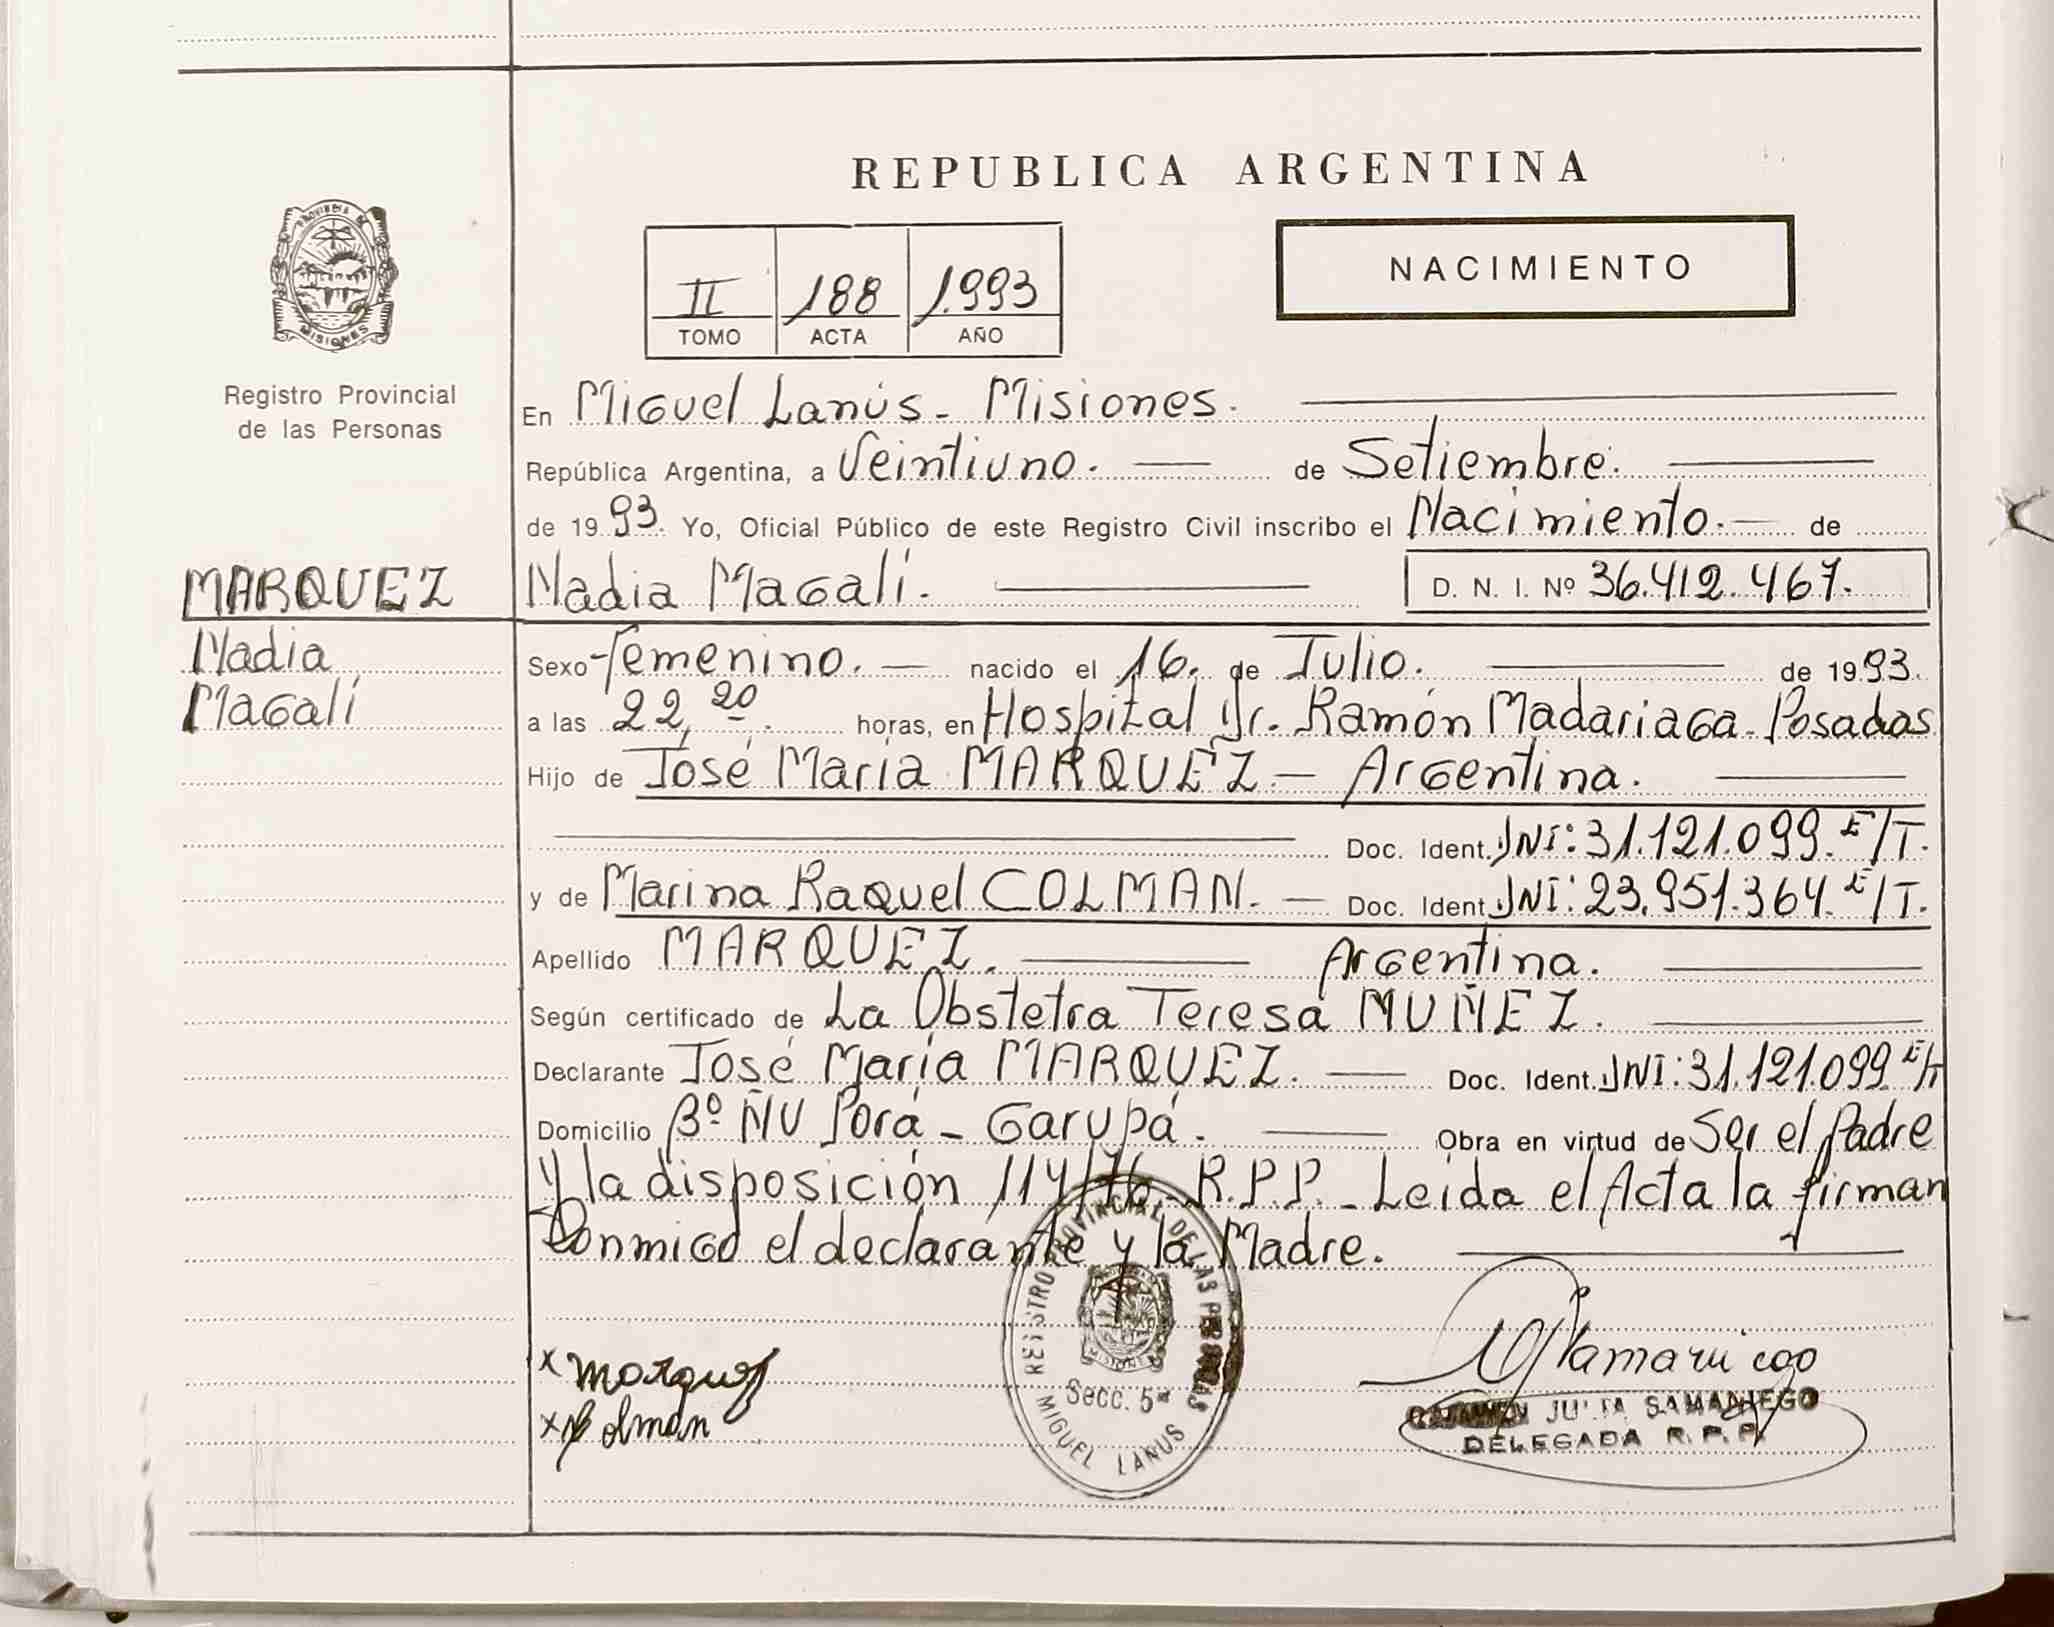 REPUBLICA ARGENTINA
PROVINCIA DE
MISIONES
Registro Provincial
de las Personas
II 188 1.993
TOMO ACTA AÑO
NACIMIENTO
En Miguel Lanús - Misiones.
República Argentina, a Veintiuno. de Setiembre.
de 1993. Yo, Oficial Público de este Registro Civil inscribo el Nacimiento. de
MARQUEZ Nadia Magalí. D. N. I. Nº 36.412.467.
Nadia
Magalí
Sexo Femenino. nacido el 16. de Julio. de 1993.
a las 22,20. horas, en Hospital Dr. Ramón Madariaga - Posadas
Hijo de José María MARQUEZ. - Argentina.
Doc. Ident. DNI: 31.121.099. E/T.
y de Marina Raquel COLMAN. - Doc. Ident. DNI: 23.951.364. E/T.
Apellido MARQUEZ. Argentina.
Según certificado de La Obstetra Teresa MUÑEZ.
Declarante José María MARQUEZ. Doc. Ident. DNI: 31.121.099 E/T
Domicilio Bº ÑU Porá - Garupá. Obra en virtud de Ser el Padre
y la disposición 114/76 - R.P.P. - Leida el Acta la firman
Conmigo el declarante y la Madre.
x Marquez
x Colman
REGISTRO PROVINCIAL DE LAS PERSONAS
MISIONES
Secc. 5ª
MIGUEL LANUS
Samaniego
JULIA SAMANIEGO
DELEGADA R. P. P.